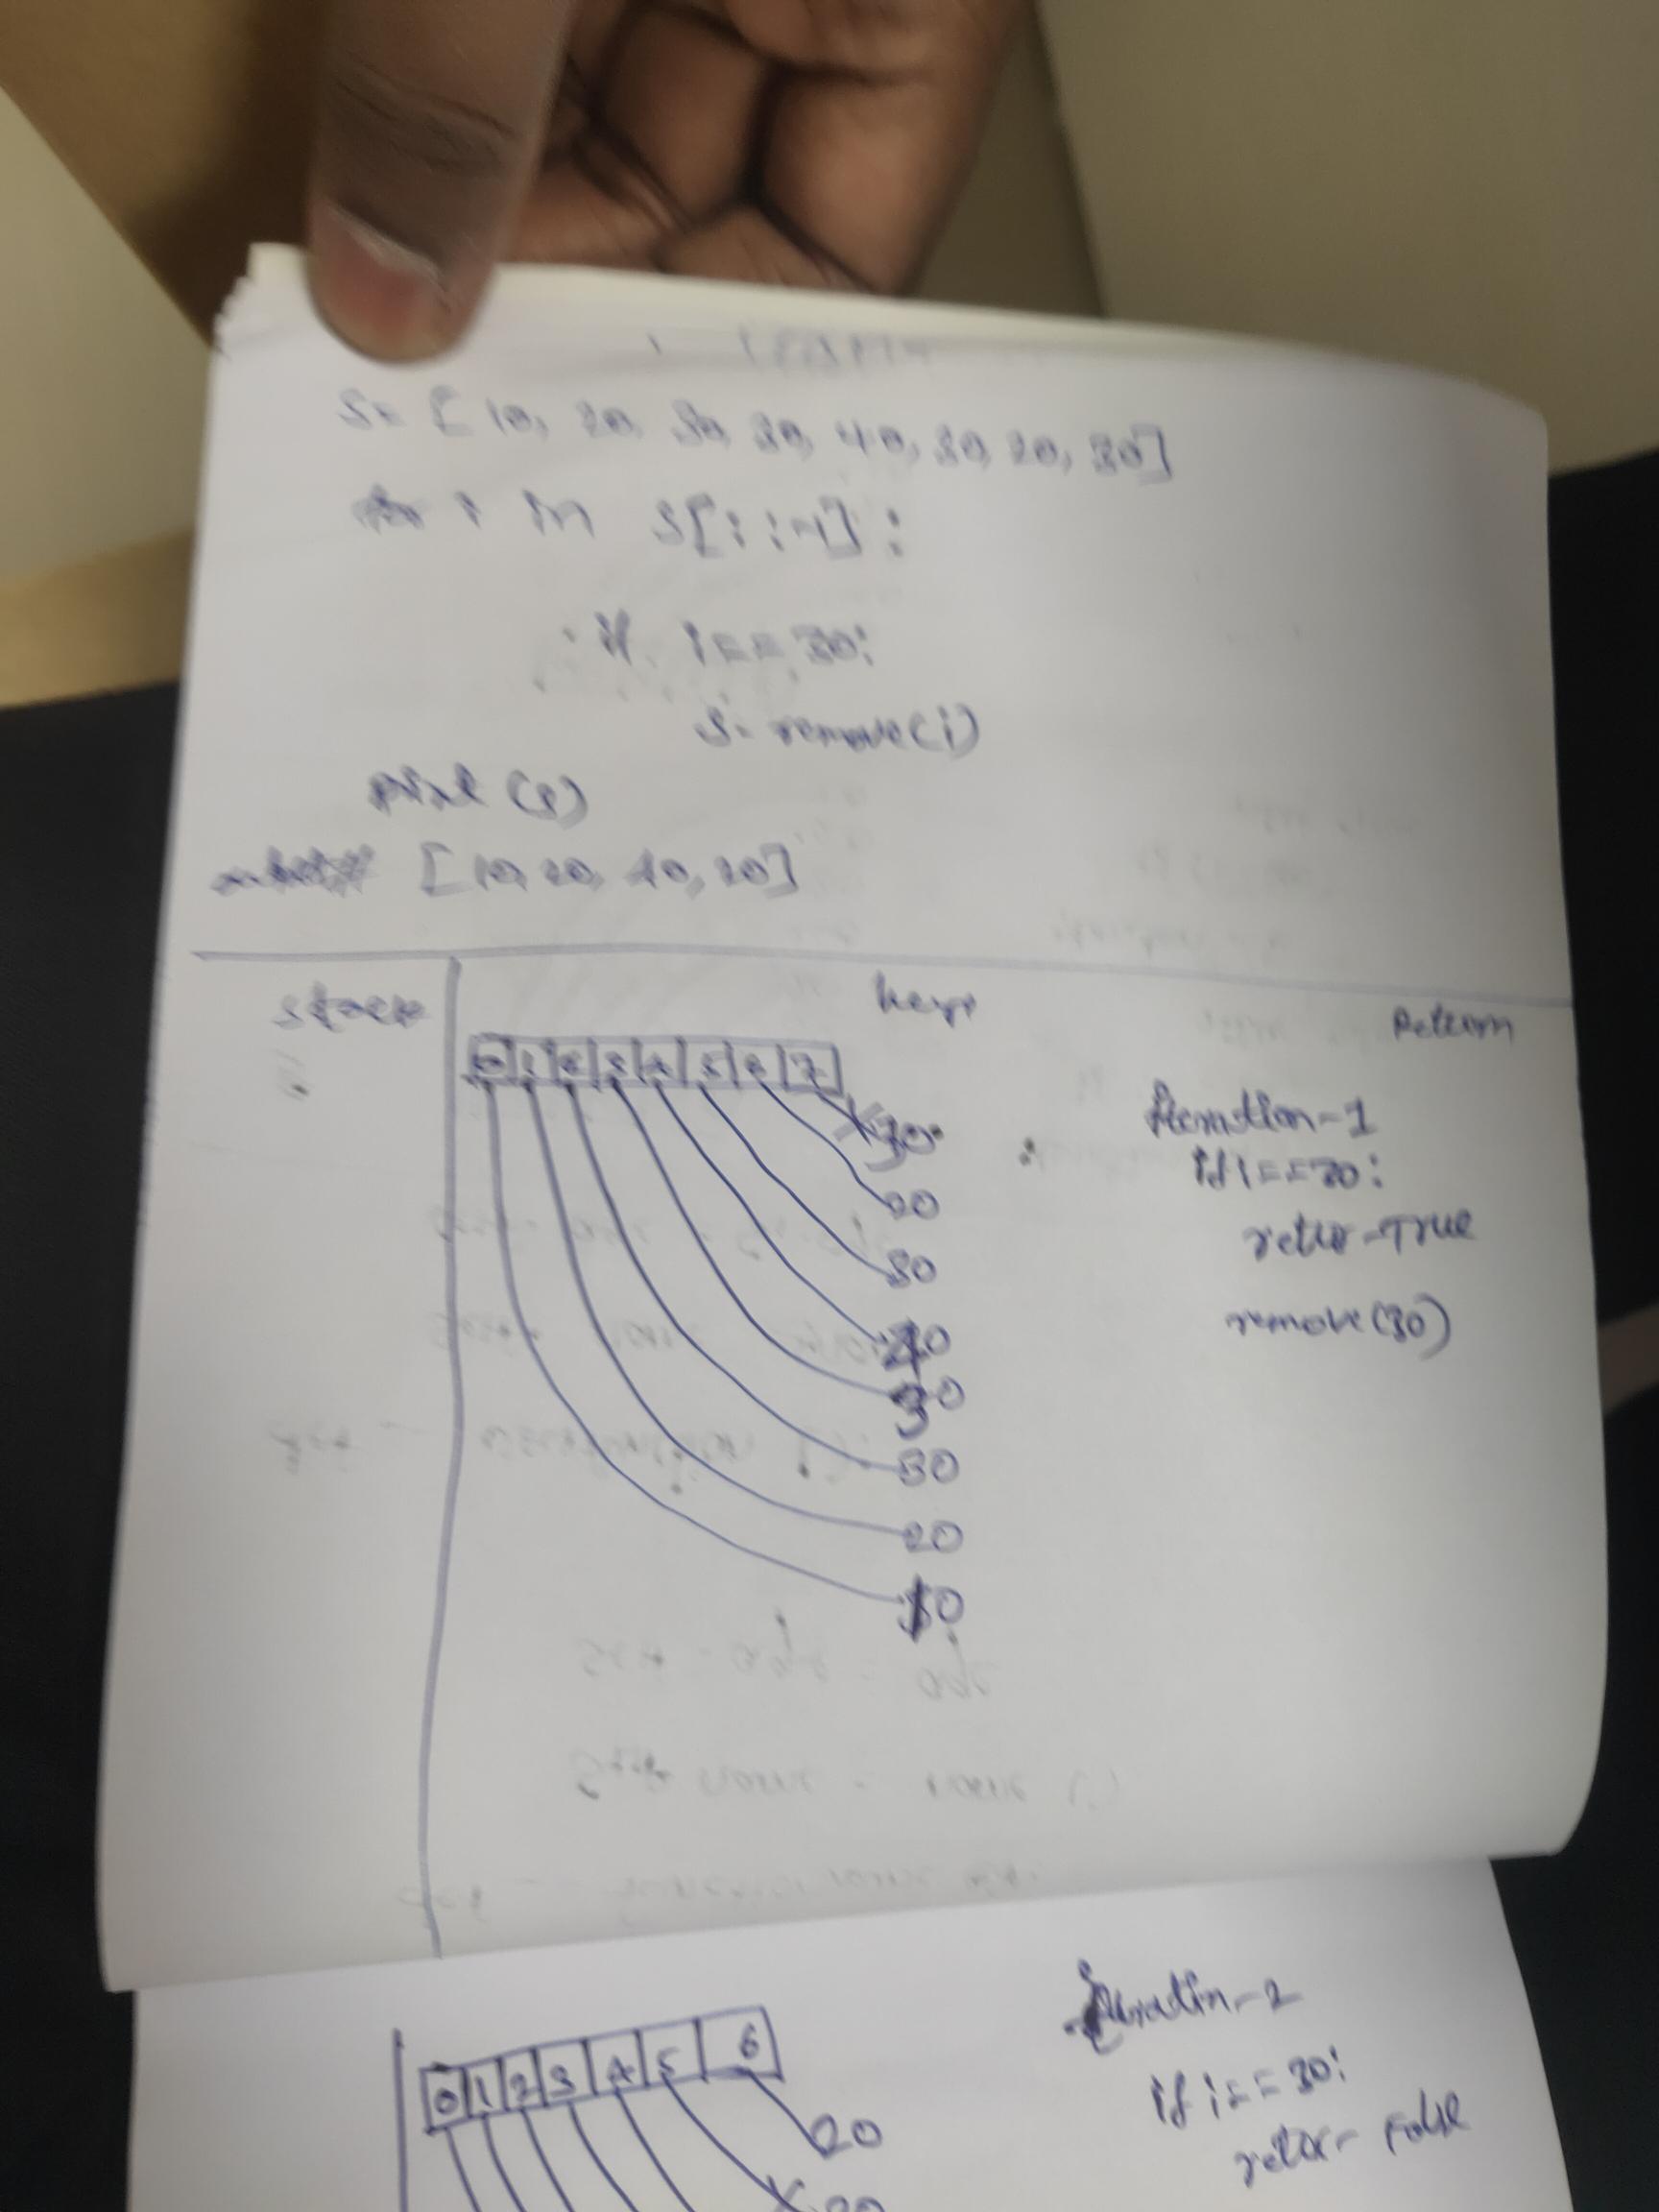 s= [10, 20, 30, 30, 40, 30, 20, 30]
for i in s[::-1]:
if i==30:
s.remove(i)
print (s)
[10, 20, 40, 20]
stack heap Return
0 1 2 3 4 5 6 7
30
20
30
40
30
30
20
10
Iteration-1
if i==30:
retur-True
remove(30)
0 1 2 3 4 5 6
20
30
Iteration-2
if i==30:
retur- False